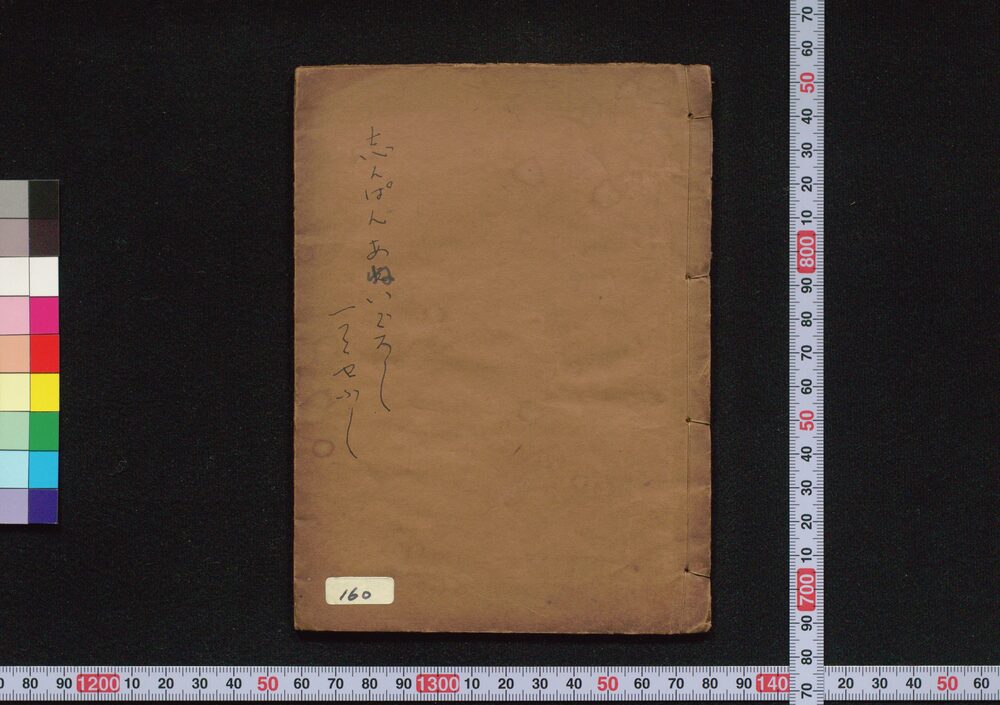 志んぱん あぬいごろし
せぶし
160
70 60 50 40 30 20 10 800 90 80 70 60 50 40 30 20 10 700 90 80 70
80 90 1200 10 20 30 40 50 60 70 80 90 1300 10 20 30 40 50 60 70 80 90 140 20 30 40 50 60